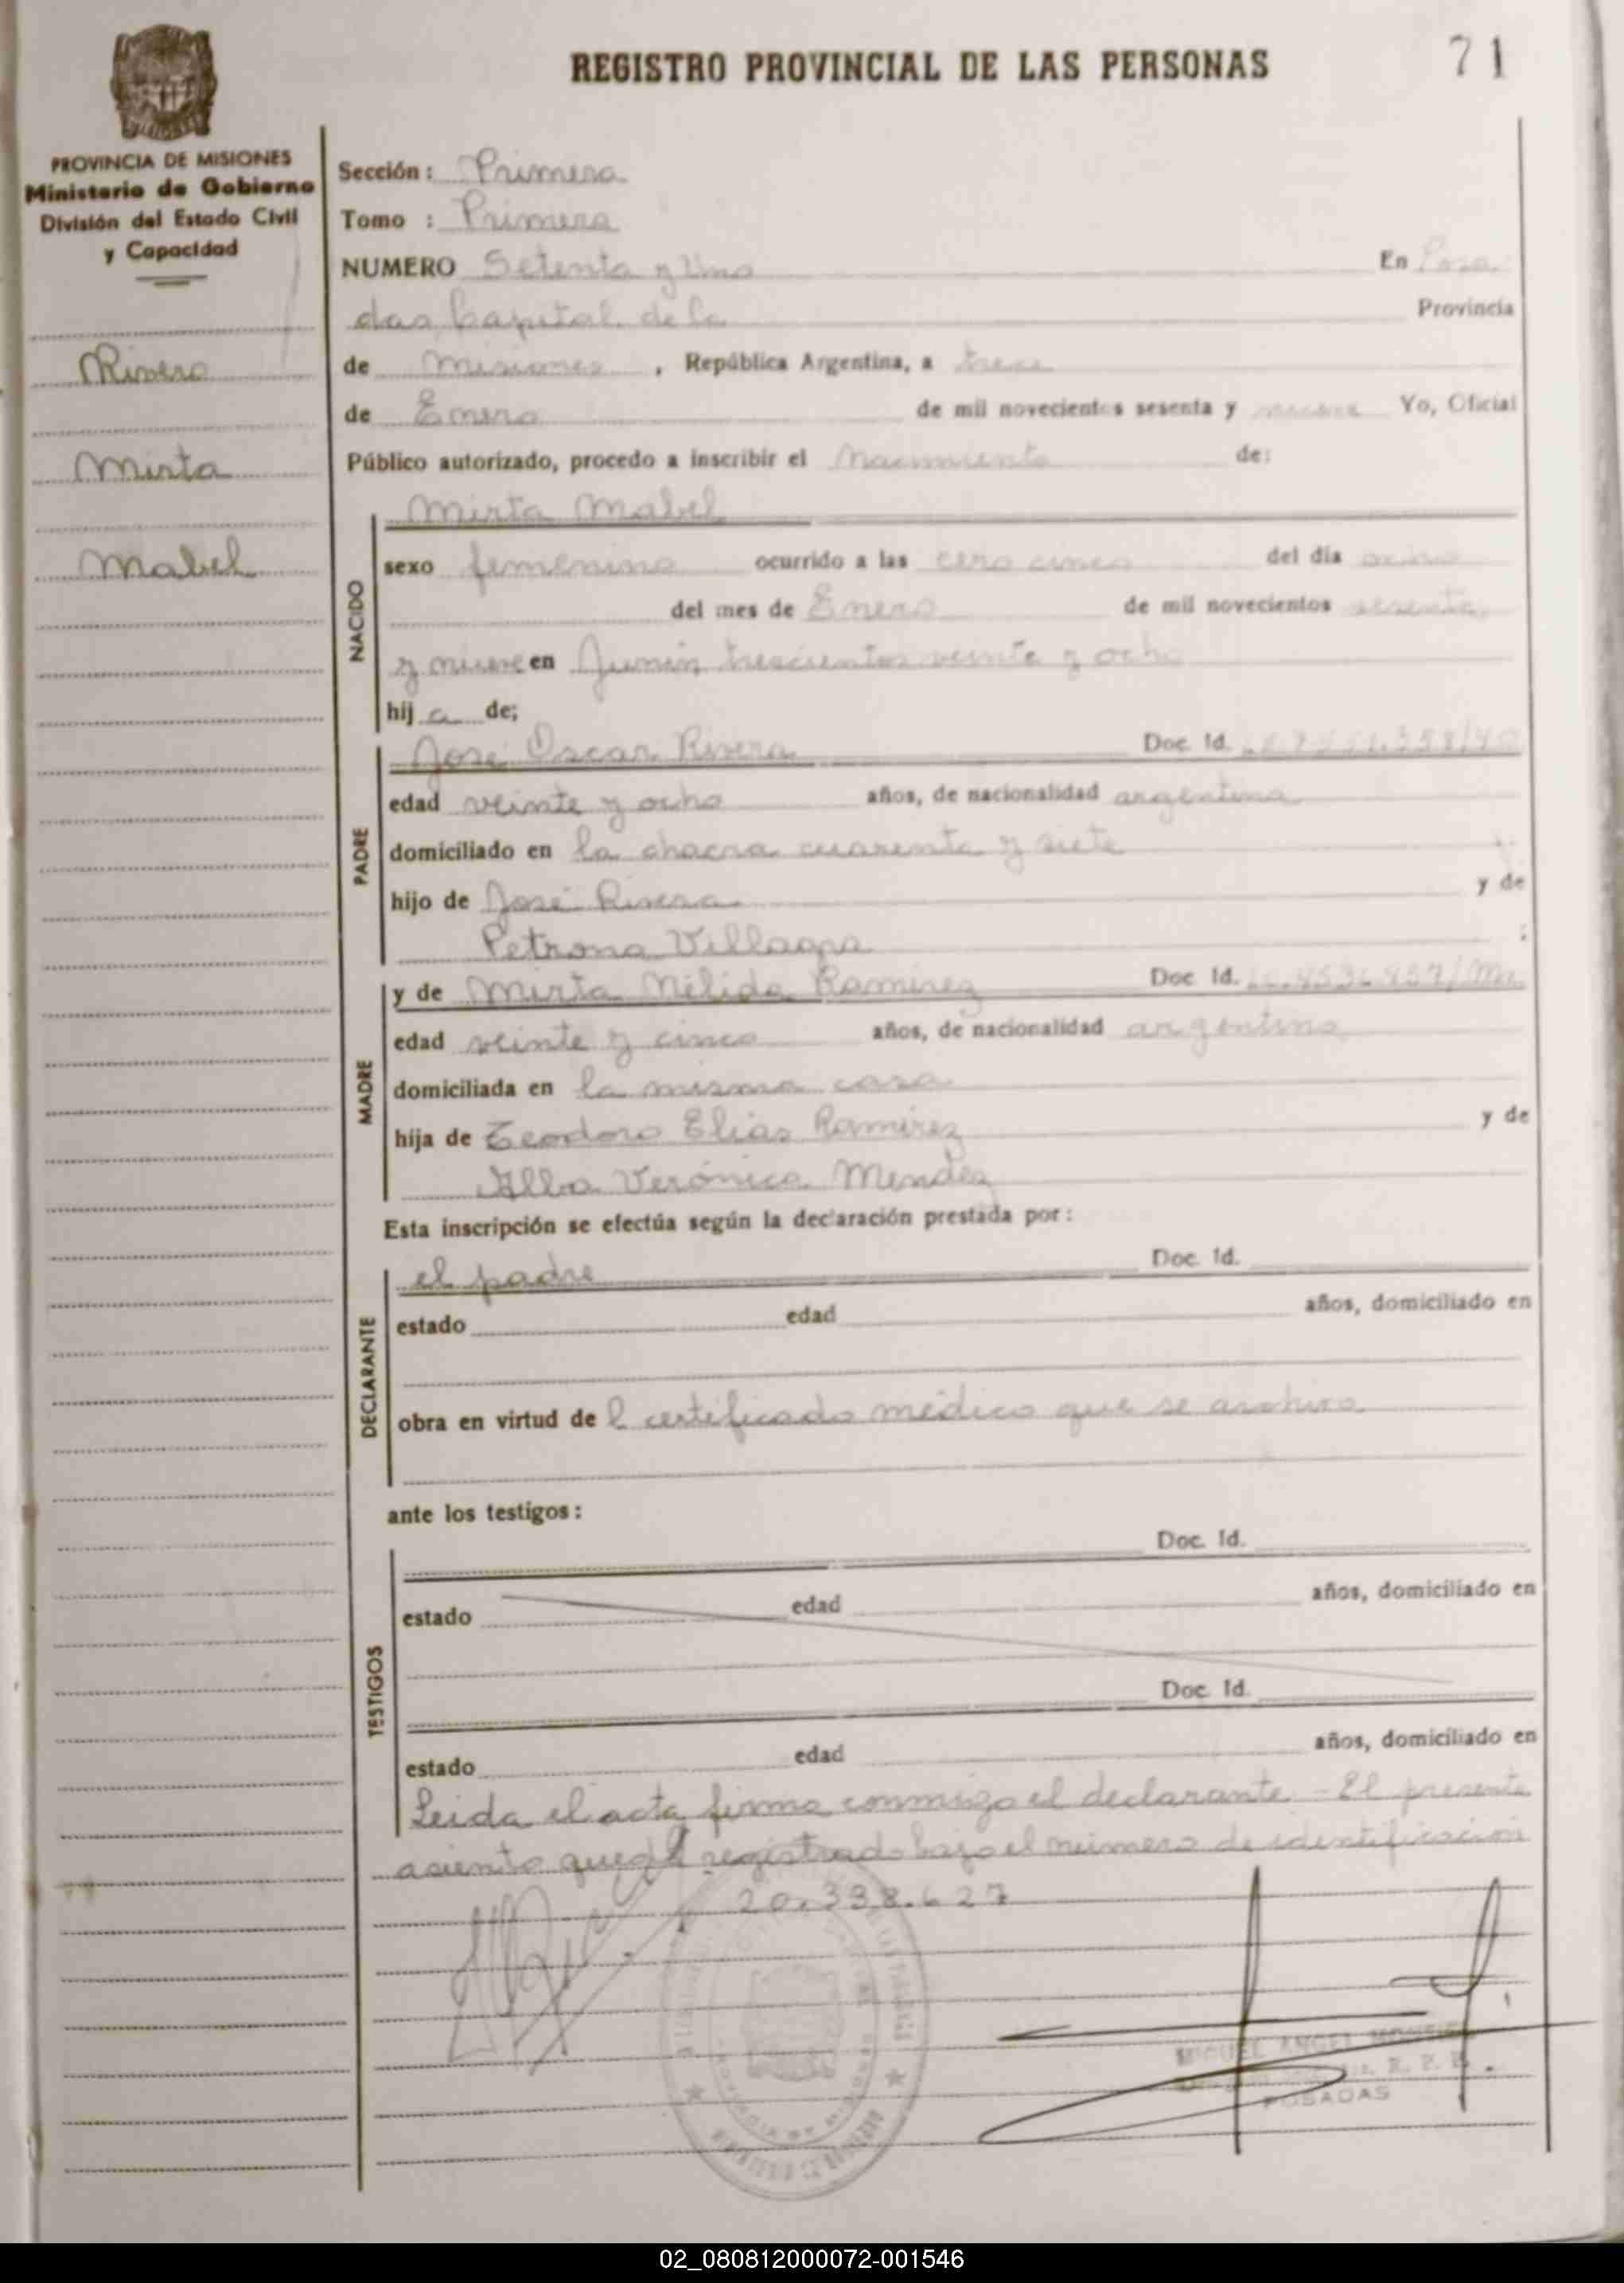 REGISTRO PROVINCIAL DE LAS PERSONAS
71
PROVINCIA DE MISIONES
Ministerio de Gobierno
División del Estado Civil
y Capacidad
Rivero
Mirta
Mabel
Sección: Primera
Tomo : Primera
NUMERO Setenta y Uno En Posa
das Capital de la Provincia
de Misiones, República Argentina, a trece
de Enero de mil novecientos sesenta y nueve Yo, Oficial
Público autorizado, procedo a inscribir el Nacimiento de:
NACIDO
Mirta Mabel
sexo femenino ocurrido a las cero cinco del día ocho
del mes de Enero de mil novecientos sesenta
y nueve en Junín trescientos veinte y ocho
hija de;
PADRE
José Oscar Rivera Doc. Id.
edad veinte y ocho años, de nacionalidad argentina
domiciliado en la chacra cuarenta y siete
hijo de José Rivera y de
Petrona Villagra ;
MADRE
y de Mirta Nélida Ramirez Doc Id.
edad veinte y cinco años, de nacionalidad argentina
domiciliada en la misma casa
hija de Teodoro Elias Ramirez y de
Alba Verónica Mendez
Esta inscripción se efectúa según la declaración prestada por:
DECLARANTE
el padre Doc. Id.
estado edad años, domiciliado en
obra en virtud del certificado médico que se archiva
ante los testigos:
TESTIGOS
Doc. Id.
estado edad años, domiciliado en
Doc. Id.
estado edad años, domiciliado en
Leida el acta firma conmigo el declarante - El presente
asiento queda registrado bajo el número de identificación
20.338.627
MIGUEL ANGEL
POSADAS
02_080812000072-001546